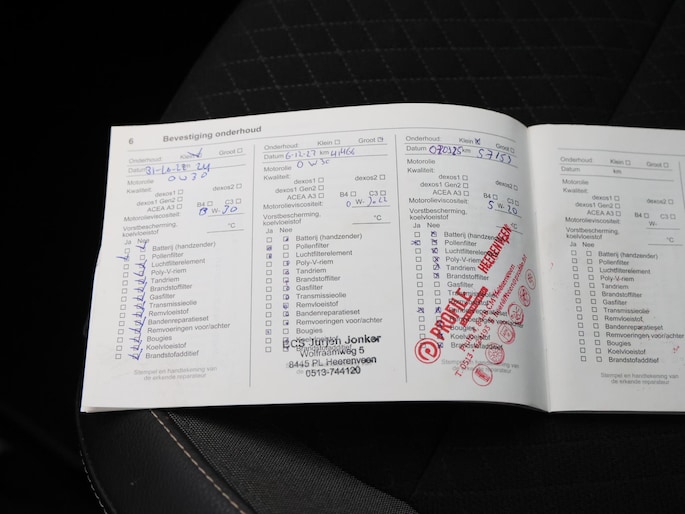 6 Bevestiging onderhoud
Onderhoud: Klein Groot
Datum 31-10-22
Motorolie 0W30
Kwaliteit:
dexos1 dexos2
dexos1 Gen2
ACEA A3 B4 C3
Motorolieviscositeit: W-30
Vorstbescherming,
koelvloeistof °C
Ja Nee
Batterij (handzender)
Pollenfilter
Luchtfilterelement
Poly-V-riem
Tandriem
Brandstoffilter
Gasfilter
Transmissieolie
Remvloeistof
Bandenreparatieset
Remvoeringen voor/achter
Bougies
Koelvloeistof
Brandstofadditief
Stempel en handtekening van
de erkende reparateur
Onderhoud: Klein Groot
Datum 6-12-23 km 41466
Motorolie 0W30
Kwaliteit:
dexos1 dexos2
dexos1 Gen2
ACEA A3 B4 C3
Motorolieviscositeit: 0 W-
Vorstbescherming,
koelvloeistof °C
Ja Nee
Batterij (handzender)
Pollenfilter
Luchtfilterelement
Poly-V-riem
Tandriem
Brandstoffilter
Gasfilter
Transmissieolie
Remvloeistof
Bandenreparatieset
Remvoeringen voor/achter
Bougies
Brandstofadditief
ECS Jurjen Jonker
Wolfraamweg 5
8445 PL Heerenveen
0513-744120
Onderhoud: Klein Groot
Datum 070325 km 57153
Motorolie
Kwaliteit:
dexos1 dexos2
dexos1 Gen2
ACEA A3 B4 C3
Motorolieviscositeit: 5 W-20
Vorstbescherming,
koelvloeistof °C
Ja Nee
Batterij (handzender)
Pollenfilter
Luchtfilterelement
Poly-V-riem
Tandriem
Brandstoffilter
Gasfilter
Remvloeistof
Bougies
Koelvloeistof
PROFILE
HEERENVEEN
Onderhoud: Klein Groot
Datum km
Motorolie
Kwaliteit:
dexos1 dexos2
dexos1 Gen2
ACEA A3 B4 C3
Motorolieviscositeit: W-
Vorstbescherming,
koelvloeistof °C
Ja Nee
Batterij (handzender)
Pollenfilter
Luchtfilterelement
Poly-V-riem
Tandriem
Brandstoffilter
Gasfilter
Transmissieolie
Remvloeistof
Bandenreparatieset
Remvoeringen voor/achter
Bougies
Koelvloeistof
Brandstofadditief
Stempel en handtekening van
de erkende reparateur